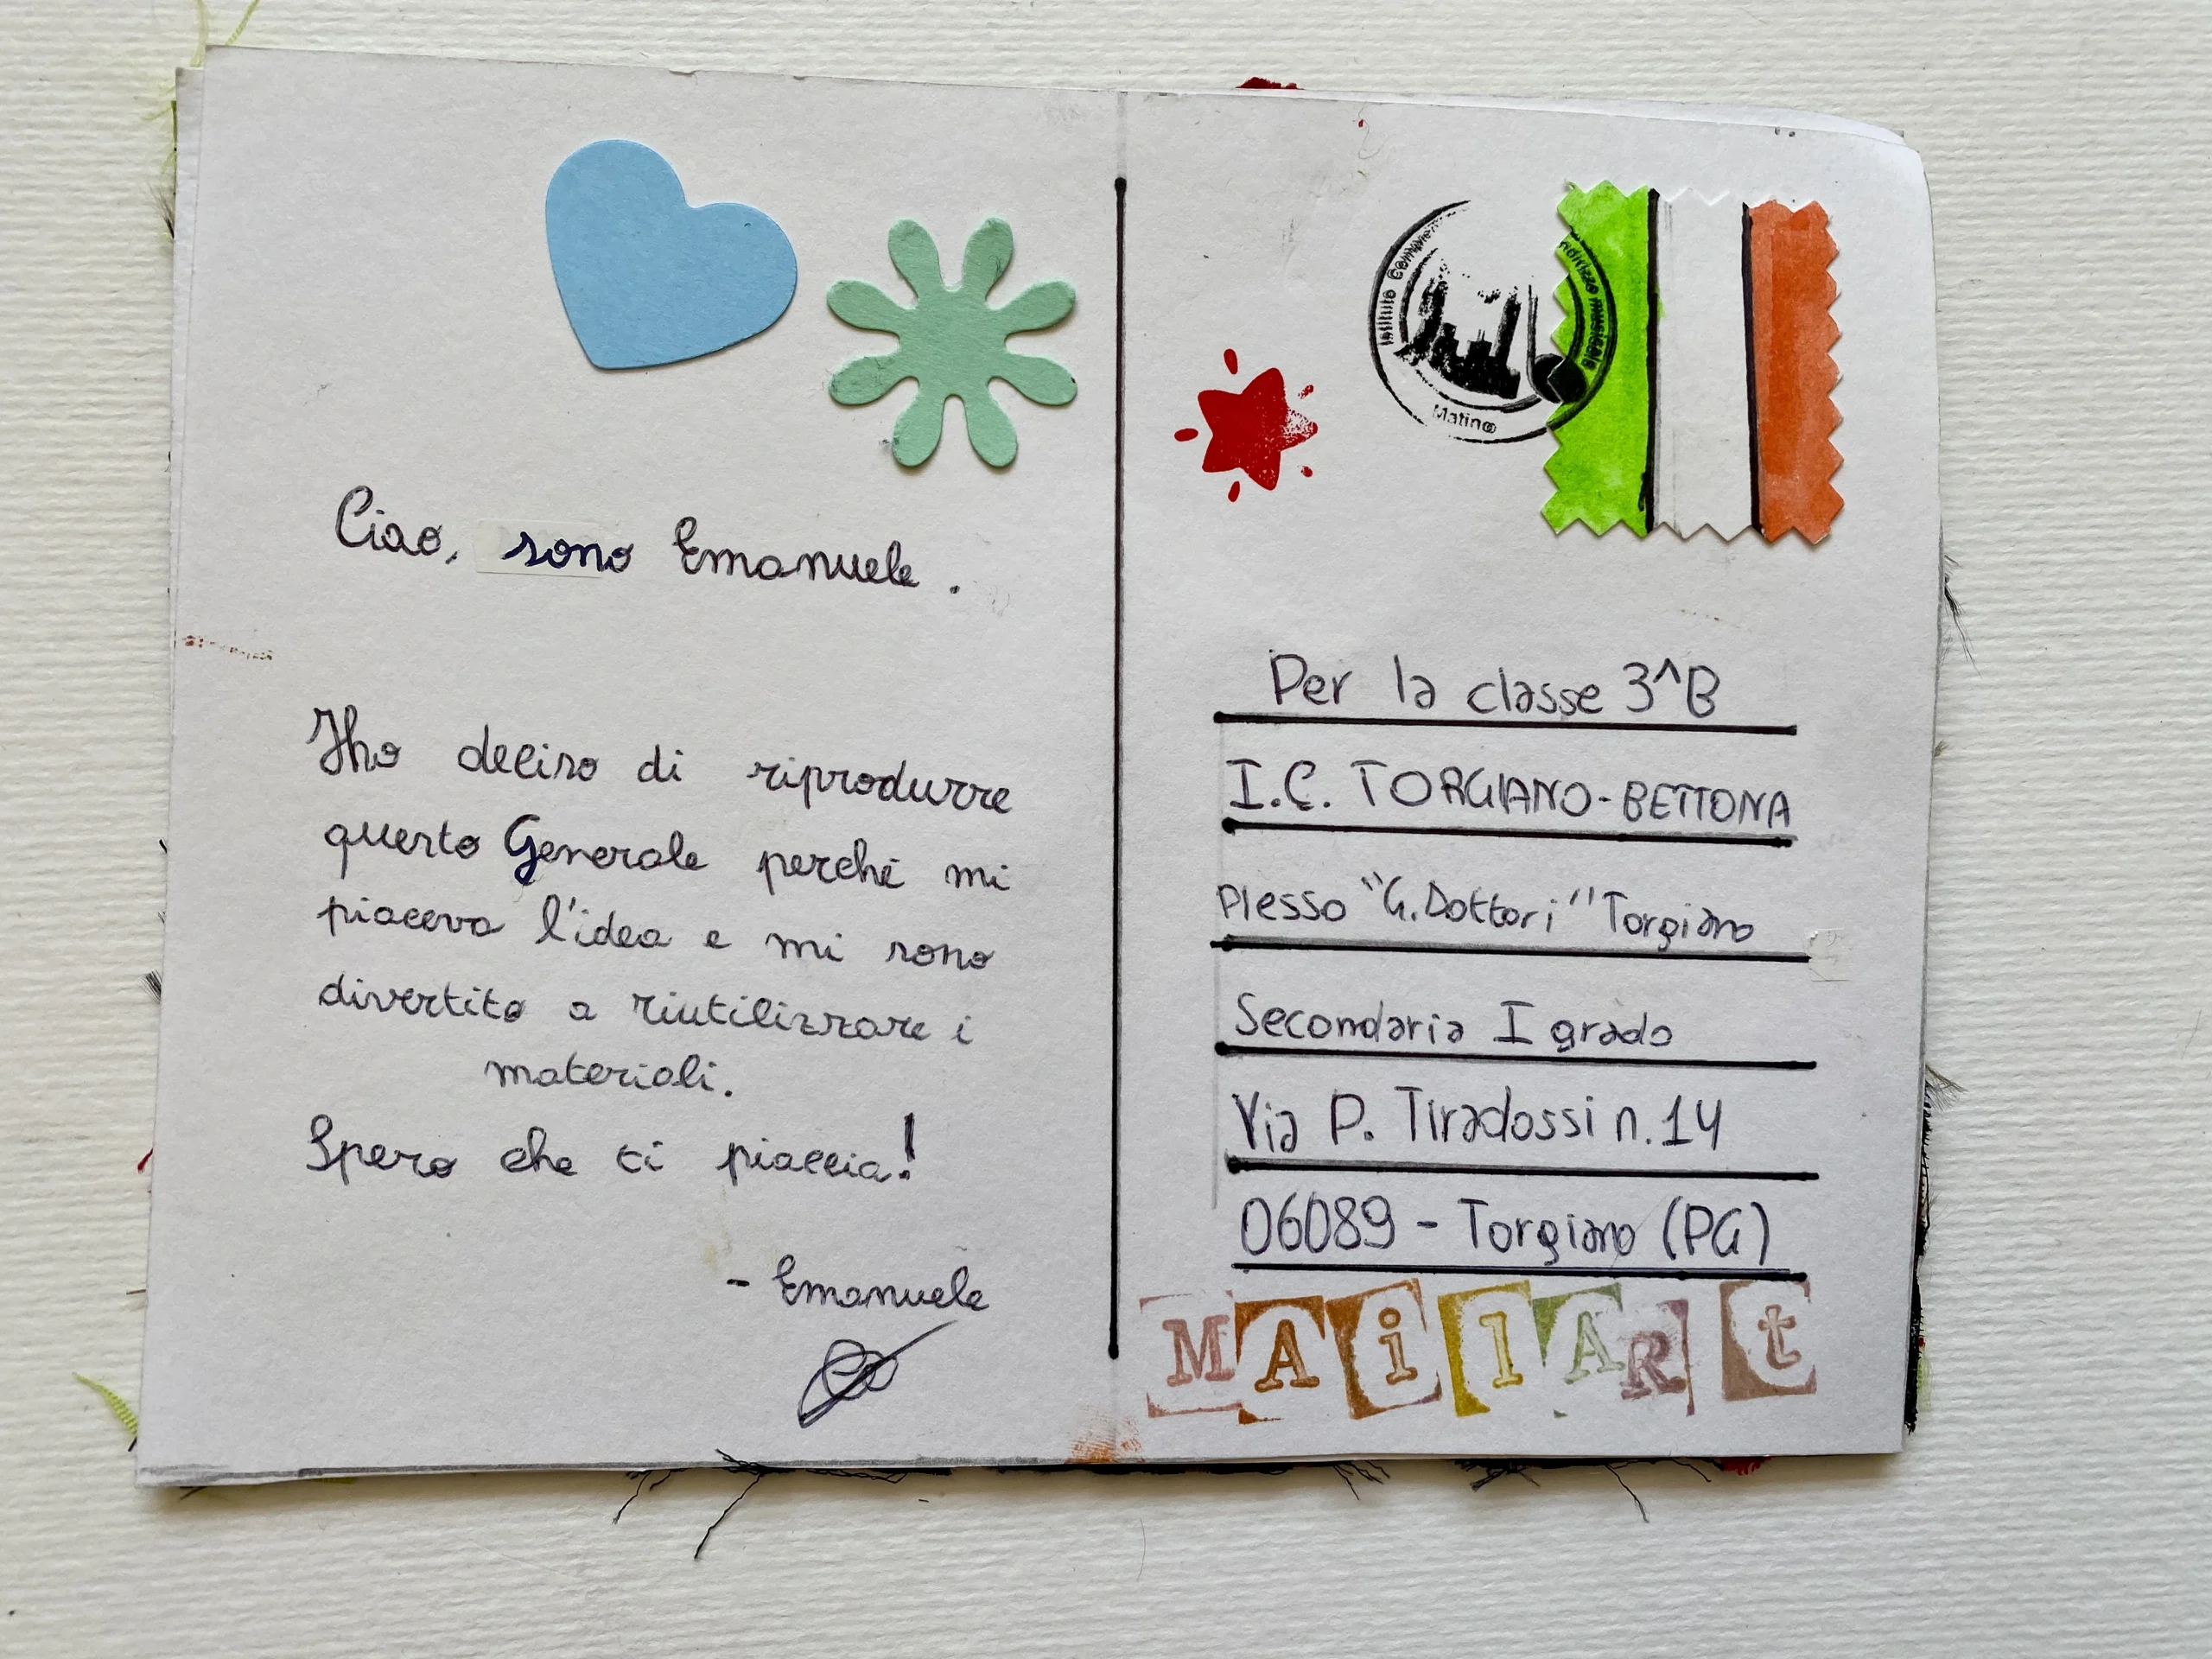 Ciao, sono Emanuele.
Ho deciso di riprodurre
questo Generale perché mi
piaceva l'idea e mi sono
divertito a riutilizzare i
materiali.
Spero che ti piaccia!
- Emanuele
Istituto musicale
Matino
Per la classe 3^B
I.C. TORGIANO-BETTONA
Plesso "G. Dottori" Torgiano
Secondaria I grado
Via P. Tiradossi n.14
06089 - Torgiano (PG)
MAilARt